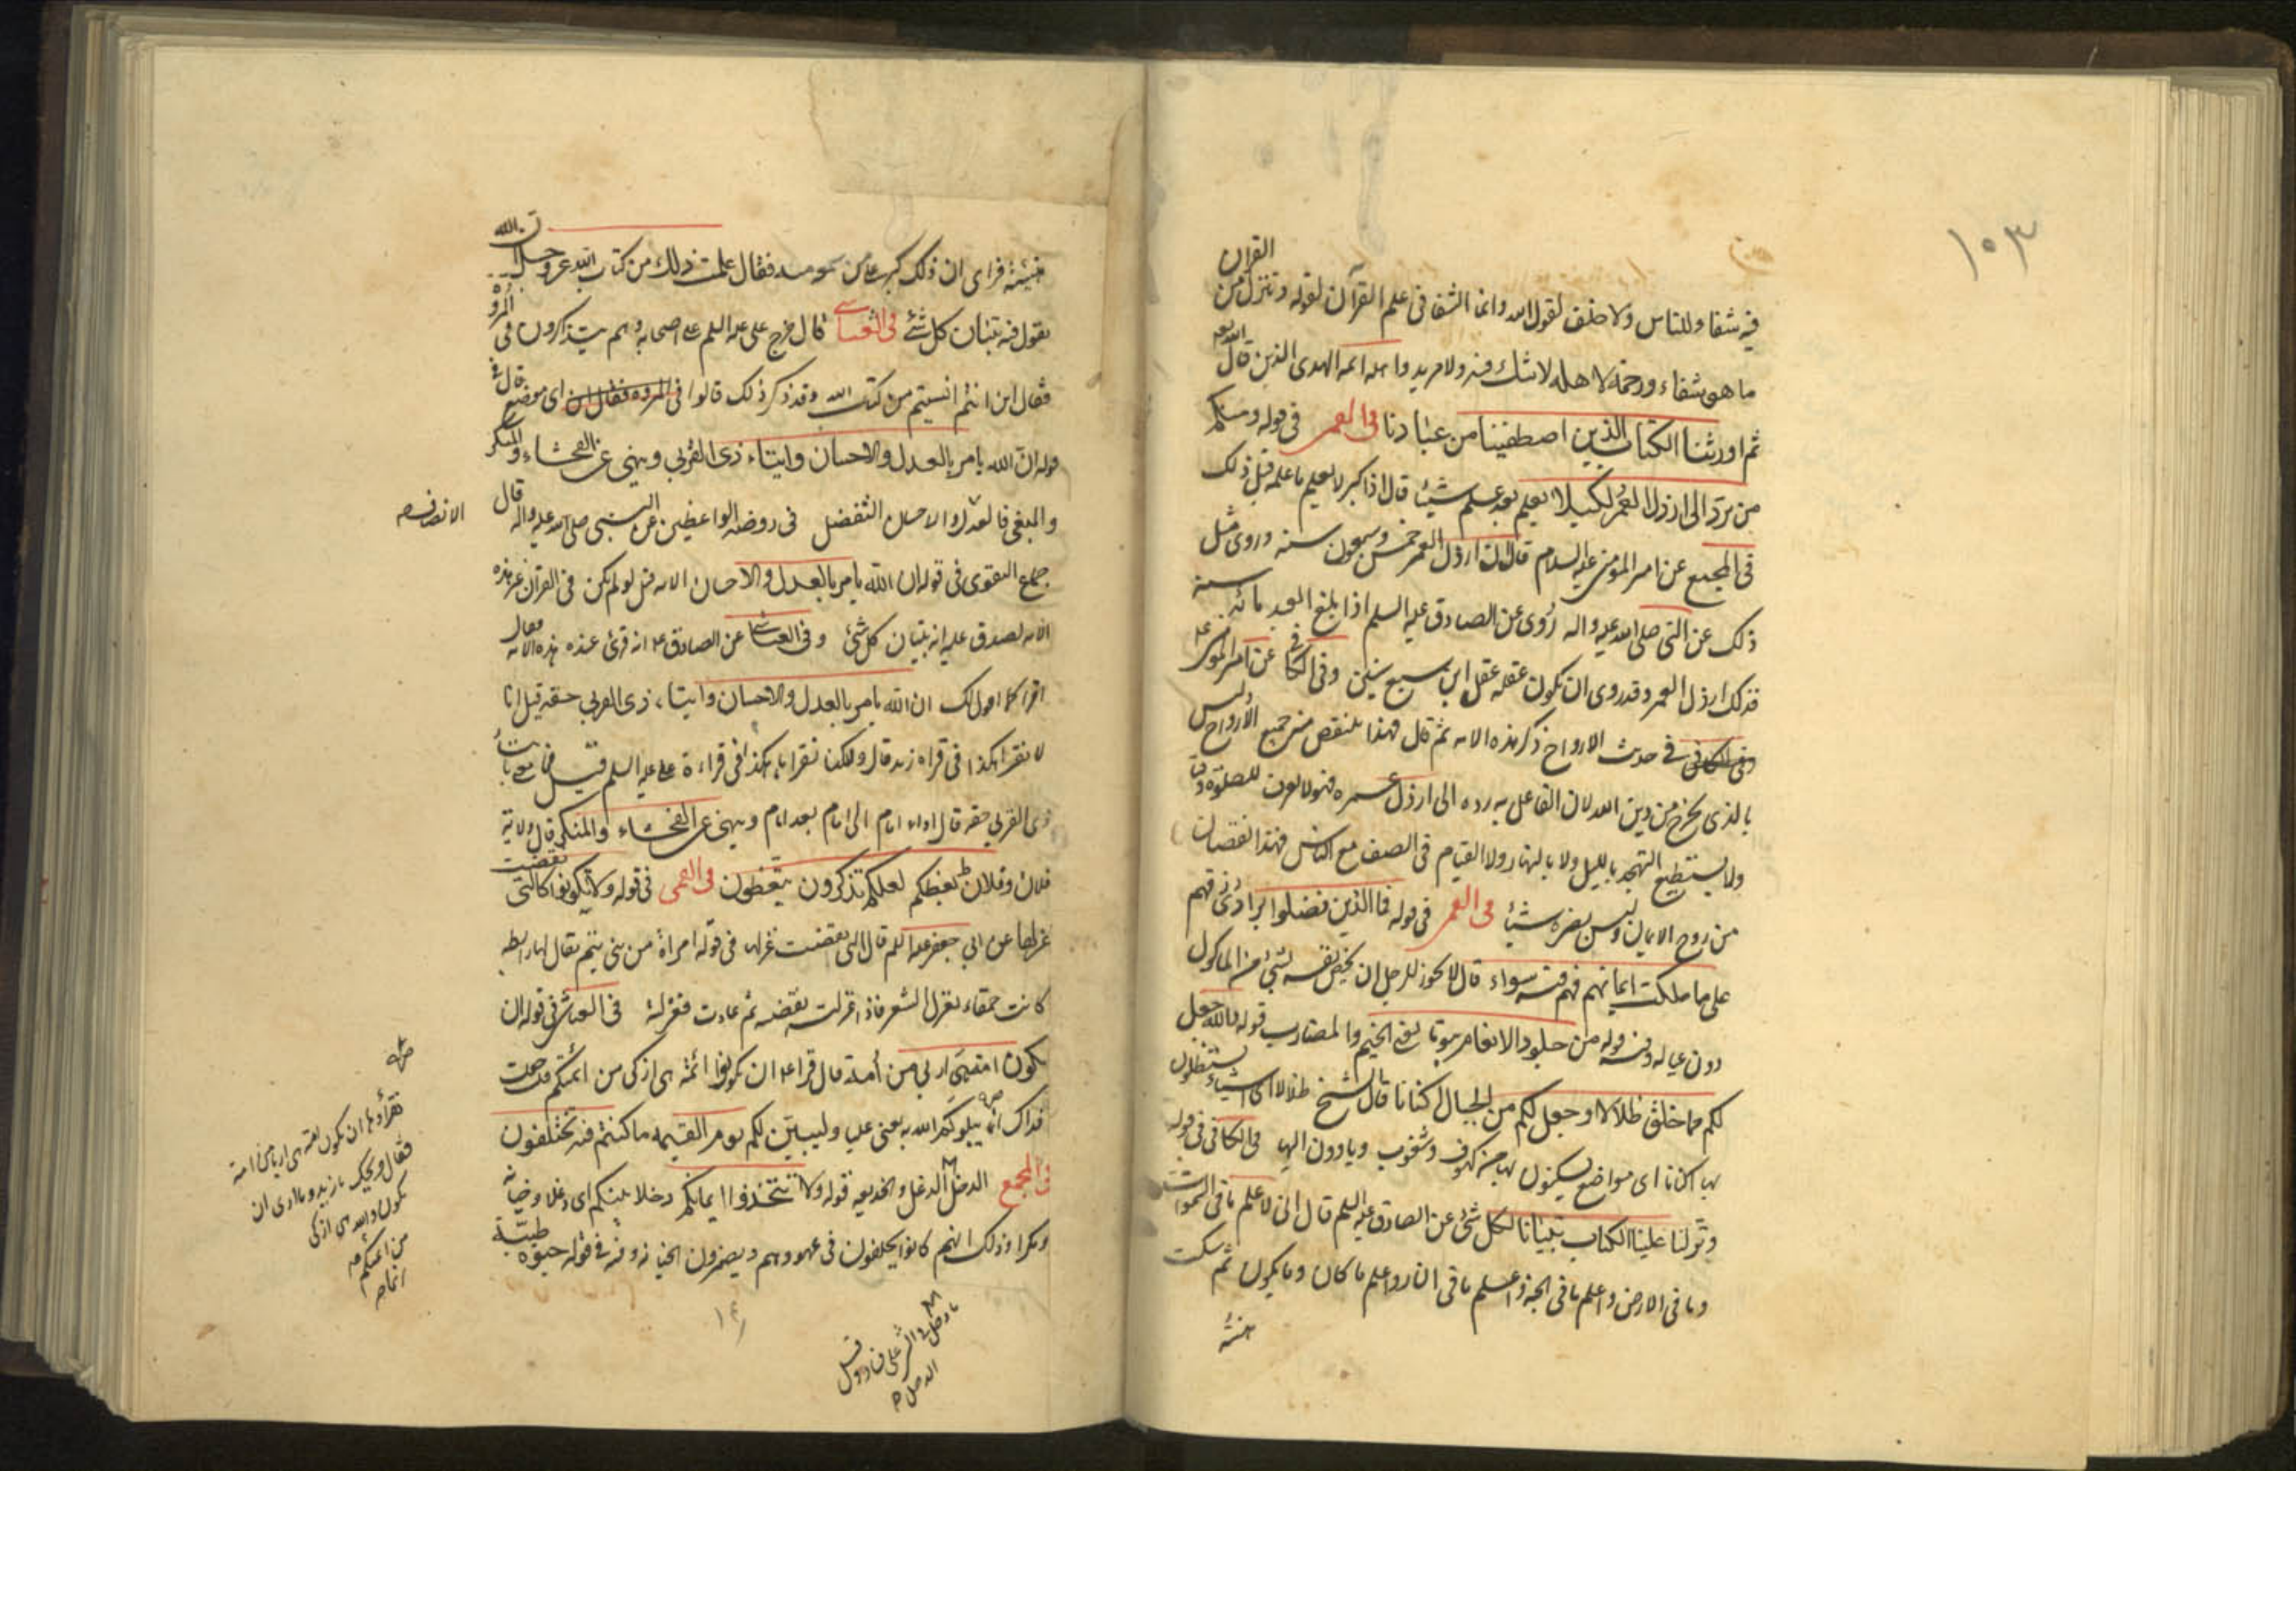 ١٠٣
فيه شفاء للناس ولا خلف لقول الله وانما الشفا فى علم القرآن لقوله وننزل من القران
ما هو شفاء ورحمة لاهله لا شك فيه ولا مرية واهله ائمة الهدى الذين قال الله
ثم اورثنا الكتاب الذين اصطفينا من عبادنا فى القمى فى قوله ومنكم
من يرد الى ارذل العمر لكيلا يعلم بعد علم شيئا قال اذا كبر لا يعلم ما علمه قبل ذلك
فى المجمع عن امير المؤمنين عليه السلام قال ان ارذل العمر خمس وسبعون سنة وروى مثل
ذلك عن النبى صلى الله عليه واله روى عن الصادق عليه السلم اذا بلغ العبد مائة سنة
فذلك ارذل العمر وقد روى ان يكون عقله عقل ابن سبع سنين وفى الكافى عن امير المؤمنين
فى حديث الارواح ذكر هذه الاية ثم قال فهذا ينقص منه جميع الارواح وليس
بالذى يخرج من دين الله لان الفاعل به رده الى ارذل عمره فهو لا يعرف للصلوة وقتا
ولا يستطيع التهجد بالليل ولا بالنهار ولا القيام فى الصف مع الناس فهذا نقصان
من روح الايمان وليس يضره شيئا فى القمى فى قوله فما الذين فضلوا برادى رزقهم
على ما ملكت ايمانهم فهم فيه سواء قال لا يجوز للرجل ان يخص نفسه بشيئ من الماكول
دون عياله وفى قوله من جلود الانعام بيوتا يعنى الخيم والمضارب قوله والله جعل
لكم مما خلق ظلالا وجعل لكم من الجبال اكنانا قال الشيخ ظلالا اى اشياء يستظلون
بها اكنانا اى مواضع يسكنون بها من كهوف وثقوب وياوون اليها فى الكافى فى قوله
ونزلنا عليك الكتاب تبيانا لكل شئ عن الصادق عليه السلم قال انى لاعلم ما فى السموات
وما فى الارض واعلم ما فى الجنة واعلم ما فى النار واعلم ما كان وما يكون ثم سكت
هنيئة
هنيئة فراى ان ذلك كبر على من سمعه منه فقال علمت ذلك من كتاب الله عز وجل ان الله
يقول فيه تبيان كل شئ فى العياشى قال خرج على عليه السلم على اصحابه وهم يتذاكرون فى المروة
فقال اين انتم انسيتم من كتاب الله وقد ذكر ذلك قالوا فى اى موضع قال فى
قوله ان الله يامر بالعدل والاحسان وايتاء ذى القربى وينهى عن الفحشاء والمنكر
والبغى فالعدل والاحسان التفضل فى روضة الواعظين عن النبى صلى الله عليه واله قال
الانصاف صح
جماع التقوى فى قوله ان الله يامر بالعدل والاحسان الاية قيل لو لم يكن فى القران غير هذه
الاية لصدق عليه انه تبيان كل شئ وفى العياشى عن الصادق ع انه قرئ عنده هذه الاية فقال
اقرا كما اقول لك ان الله يامر بالعدل والاحسان وايتاء ذى القربى حقه قيل انا
لا نقرا هكذا فى قراة زيد قال ولكنا نقراها هكذا فى قراءة على عليه السلم قيل فما يعنى بايتاء
ذى القربى حقه قال اداء امام الى امام بعد امام وينهى عن الفحشاء والمنكر قال ولاية
فلان وفلان يعظكم لعلكم تذكرون يتعظون فى القمى فى قوله ولا تكونوا كالتى نقضت
غزلها عن ابى جعفر عليه السلم قال التى نقضت غزلها فى قوله امراة من بنى تيم يقال لها رايطه
كانت حمقاء تغزل الشعر فاذا غزلت نقضته ثم عادت فغزلته فى العياشى فى قوله ان
تكون امة هى اربى من أمة قال قرا ع ان تكونوا ائمة هى ازكى من ائمتكم قد جعلت
فداك انما يبلوكم الله به يعنى على وليبينن لكم يوم القيمه ما كنتم فيه تختلفون
فى المجمع الدخل الدغل والخديعه قوله ولا تتخذوا ايمانكم دخلا بينكم اى دغلا وخيانة
ومكرا وذلك انهم كانوا يحلفون فى عهودهم ويضمرون الخيانة وفى قوله حيوة طيبة
صح
نقراؤها ان تكون امة هى اربى من امة
فقال ويحك يا زيد وما اربى ان
تكون والله هى ازكى
من ائمتكم صح